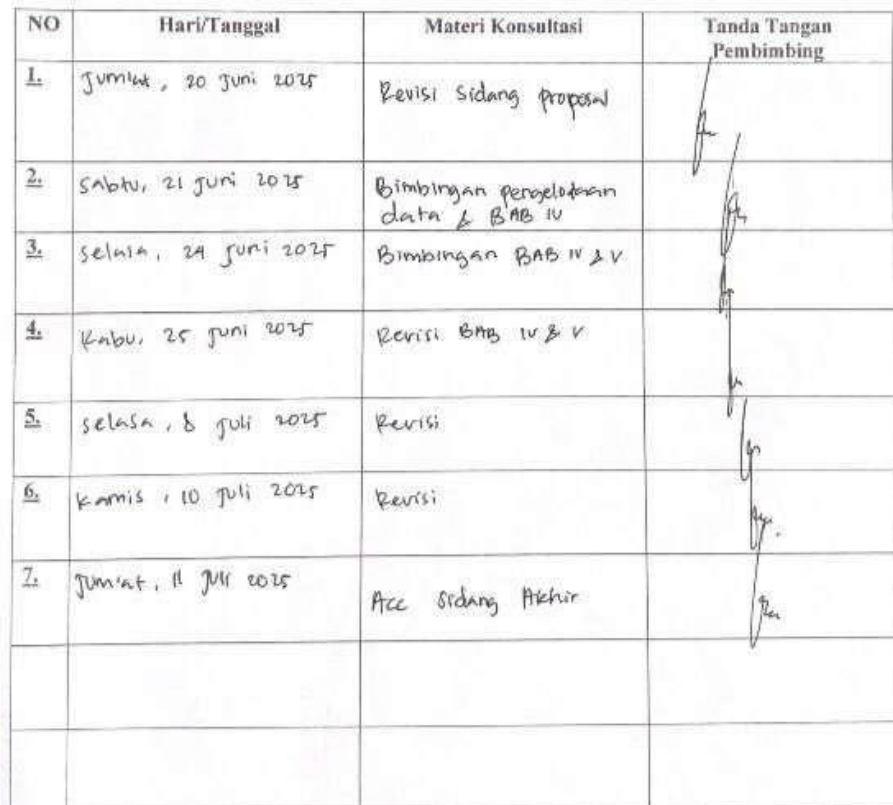 NO Hari/Tanggal Materi Konsultasi Tanda Tangan
Pembimbing
1. Jum'at, 20 Juni 2025 Revisi Sidang proposal
2. Sabtu, 21 Juni 2025 Bimbingan pengelolaan
data & BAB IV
3. Selasa, 24 Juni 2025 Bimbingan BAB IV & V
4. Rabu, 25 Juni 2025 Revisi BAB IV & V
5. Selasa, 8 Juli 2025 Revisi
6. Kamis, 10 Juli 2025 Revisi
7. Jum'at, 11 Juli 2025 Acc Sidang Akhir